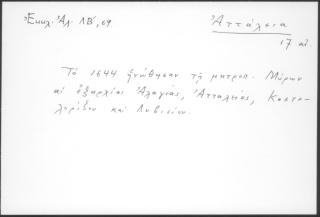 Ἐκκλ. Ἀλ. ΛΒ΄, 69
Ἀττάλεια
17 αἰ.
Τὸ 1644 ἡνώθησαν τῇ μητροπ. Μύρων
αἱ ἐξαρχίαι Ἀλαγίας, Ἀτταλείας, Καστελ-
λορίζου καὶ Λιβισίου.